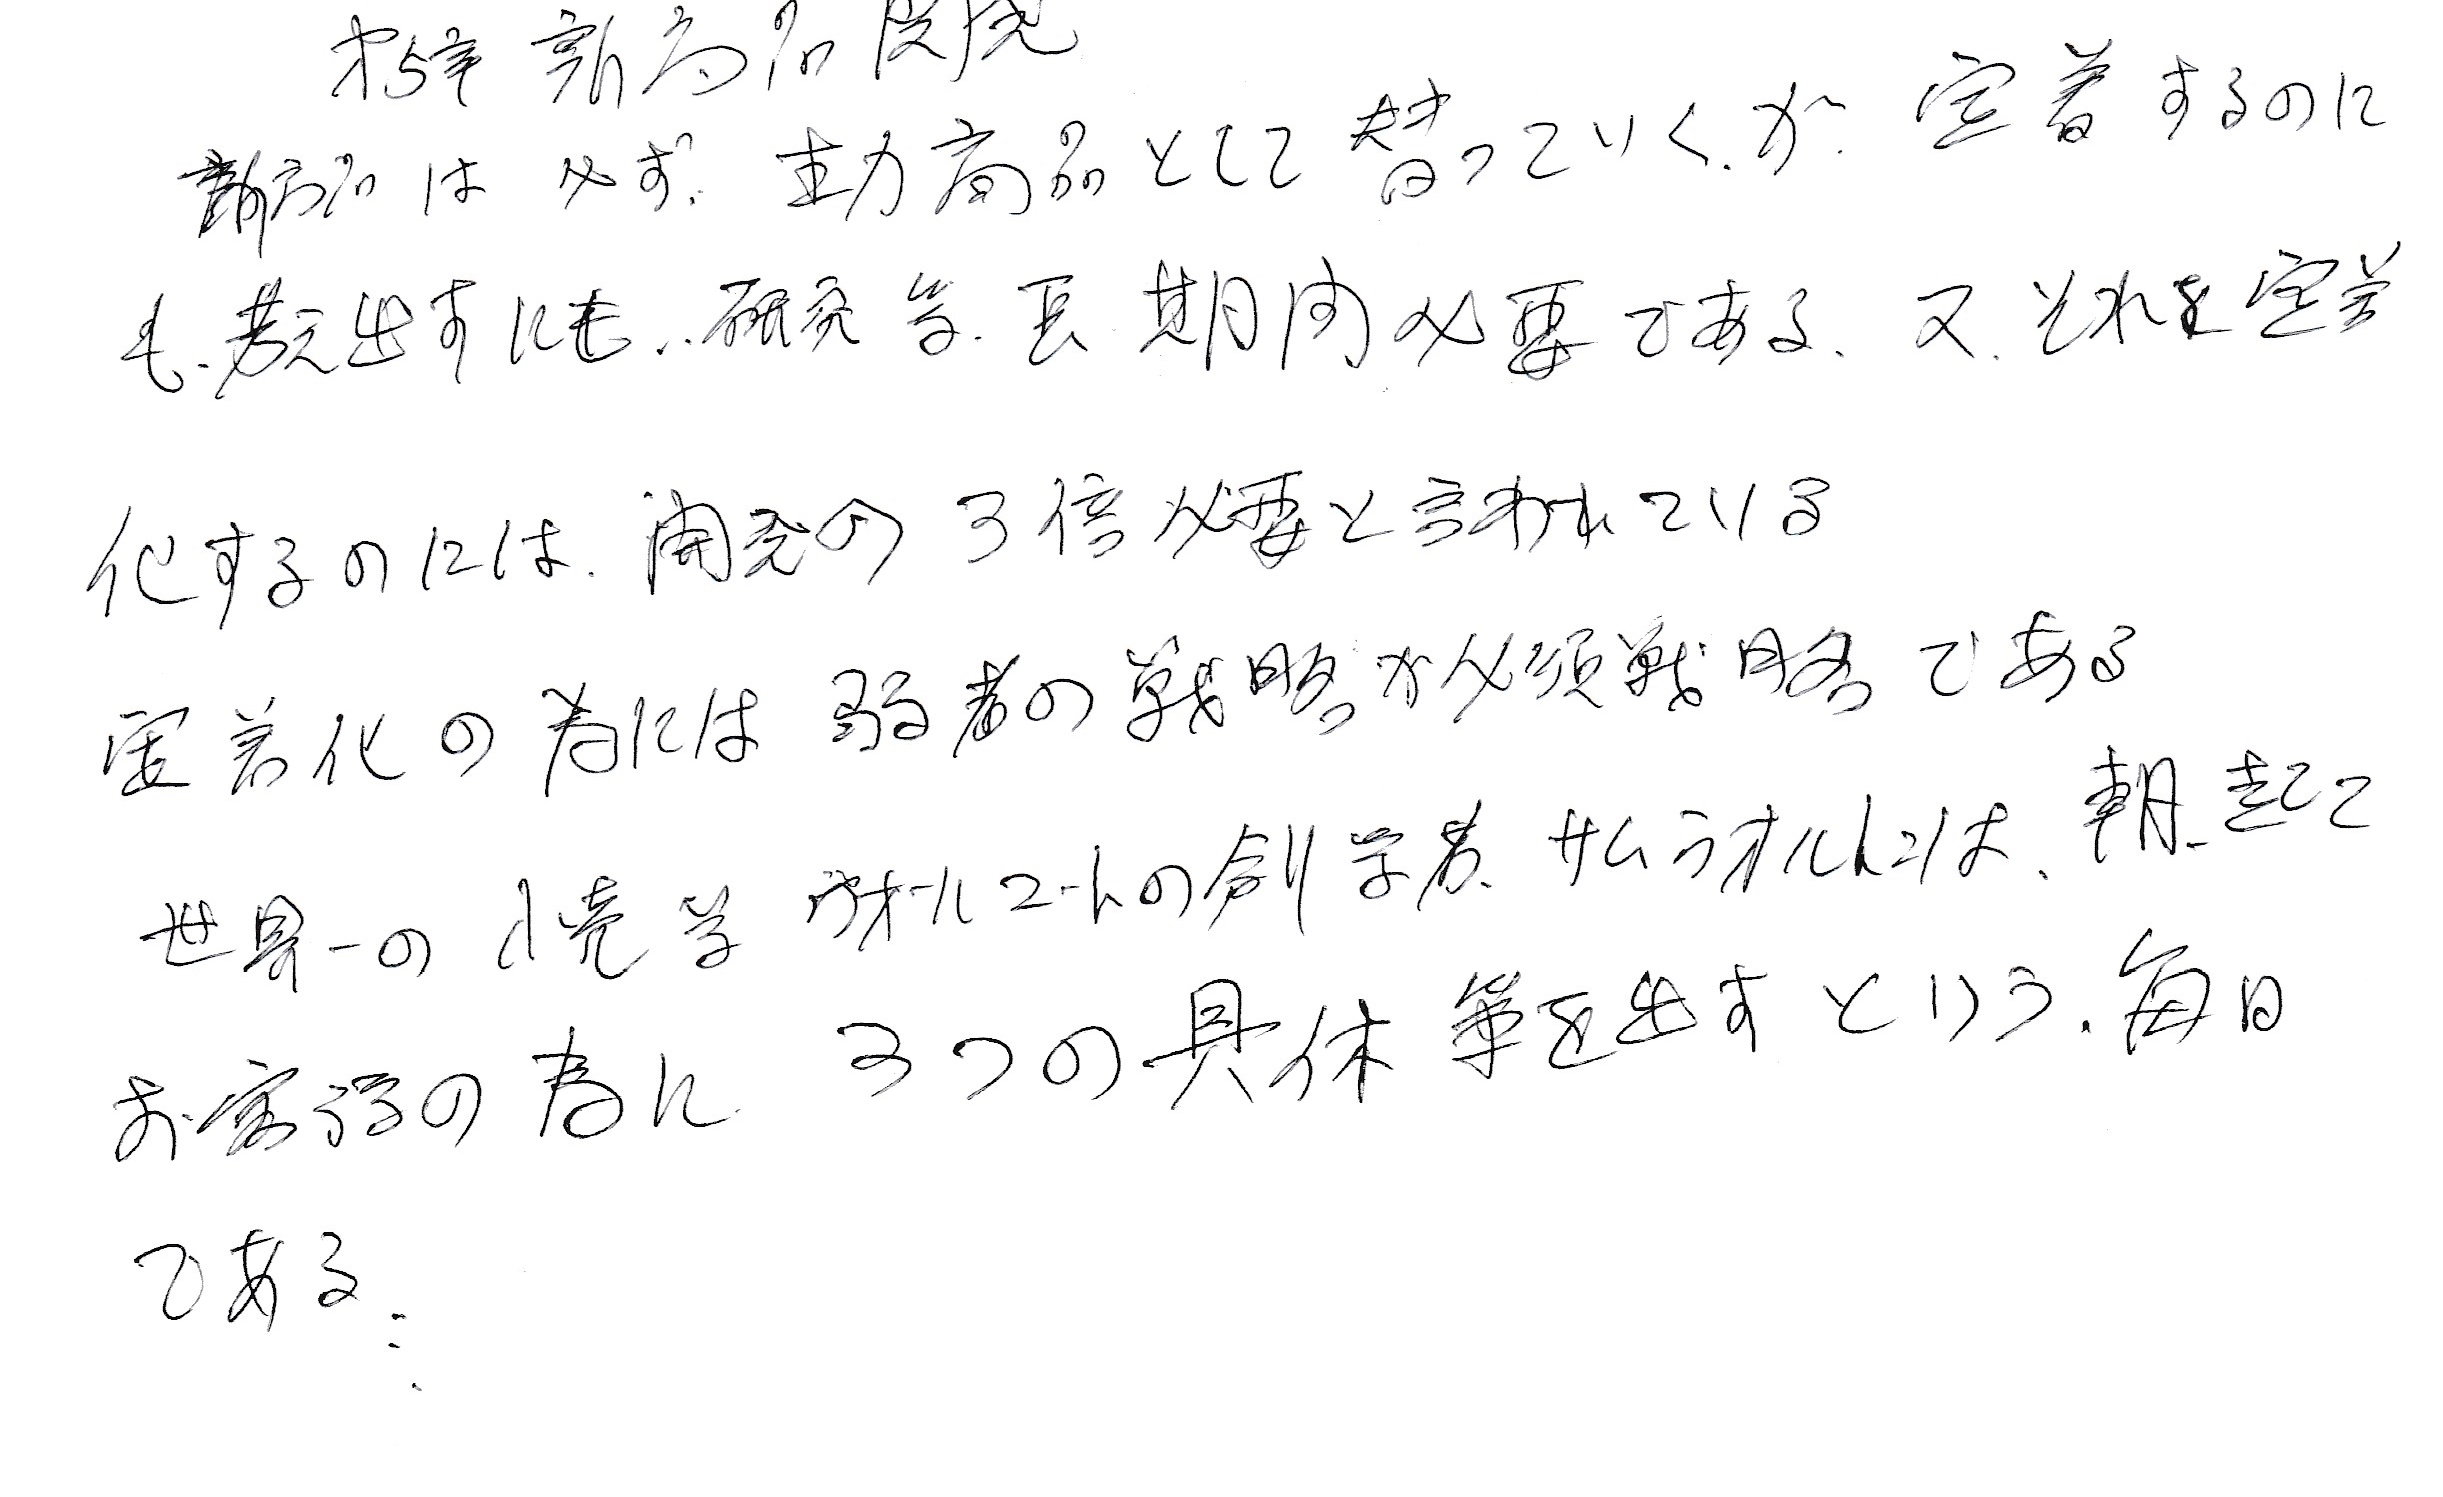 才5章 新商品開発
新商品は 必ず、主力商品として 替っていく、が、定着するのに
も、考え出すにも、研究等、長期間必要である、又、それを定着
化するのには、開発の 3倍必要と言われている
定着化の為には 弱者の戦略が必須戦略である
世界一の小売業 ウォールマートの創業者、サムウォルトンは、朝、起きて
お客様の為に 3つの具体策を出すという、毎日
である、